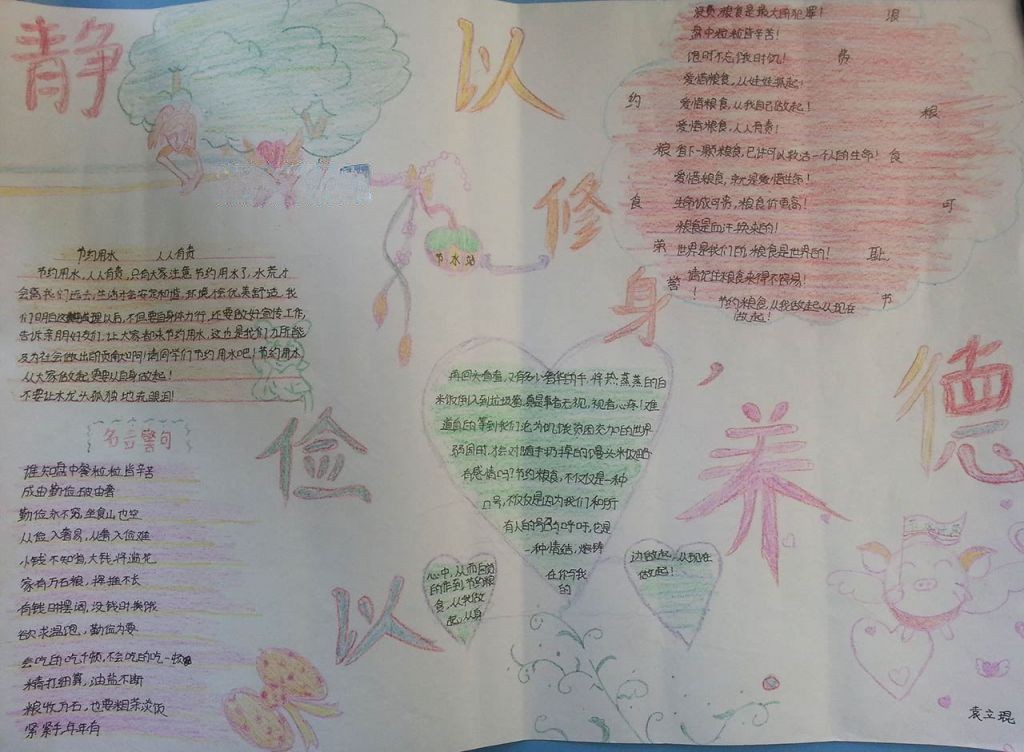 静以修身，俭以养德
浪费粮食是最大的犯罪！
盘中粒粒皆辛苦！
饱时不忘饿时饥！
爱惜粮食，从娃娃抓起！
爱惜粮食，从我自己做起！
爱惜粮食，人人有责！
省下一颗粮食，已许可以救活一个人的生命！
爱惜粮食，就是爱惜生命！
生命诚可贵，粮食价更高！
粮食是血汗换来的！
世界是我们的，粮食是世界的！
请记住粮食来得不容易！
节约粮食，从我做起，从现在
做起！
浪
费
粮
食
可
耻
节
约
粮
食
第
誉
！
节约用水
节约用水 人人有责
节约用水，人人有责，只有大家注意节约用水了，水荒才
会离我们远去，生活才会安定和谐，环境才会优美舒适，我
们以后，不但要自身体力行，还要做好宣传工作，
告诉亲朋好友们，让大家都来节约用水，这也是我们力所能
及为社会做出的贡献啊！请同学们节约用水吧！节约用水
从大家做起更要从自身做起！
不要让水龙头孤独地流眼泪！
名言警句
谁知盘中餐粒粒皆辛苦
成由勤俭破由奢
勤俭永不穷，坐食山也空
从俭入奢易，从奢入俭难
小钱不知省，大钱将滥花
家有万石粮，挥揮不长
有钱时摆阔，没钱时挨饿
欲求温饱，勤俭为要
会吃的吃千顿，不会吃的吃一顿
精打细算，油盐不断
粮收万石，也要粗茶淡饭
紧紧手年年有
再回头看看，又有多少奢华的手，将热蒸蒸的白
米饭倒入到垃圾篓，真是事者无视，视者心疼！难
道真的等到我们沦为饥饿贫困交加的世界
弱国时，才会对随手扔掉的馒头米饭略
有感悟吗？节约粮食，不仅仅是一种
口号，不仅是因为我们和所
有人的号召与呼吁，它是
一种情结，熔铸
在你与我
的
心中，从而自觉
的作到节约粮
食，从我做
起，从身
边做起，从现在
做起！
袁立琨